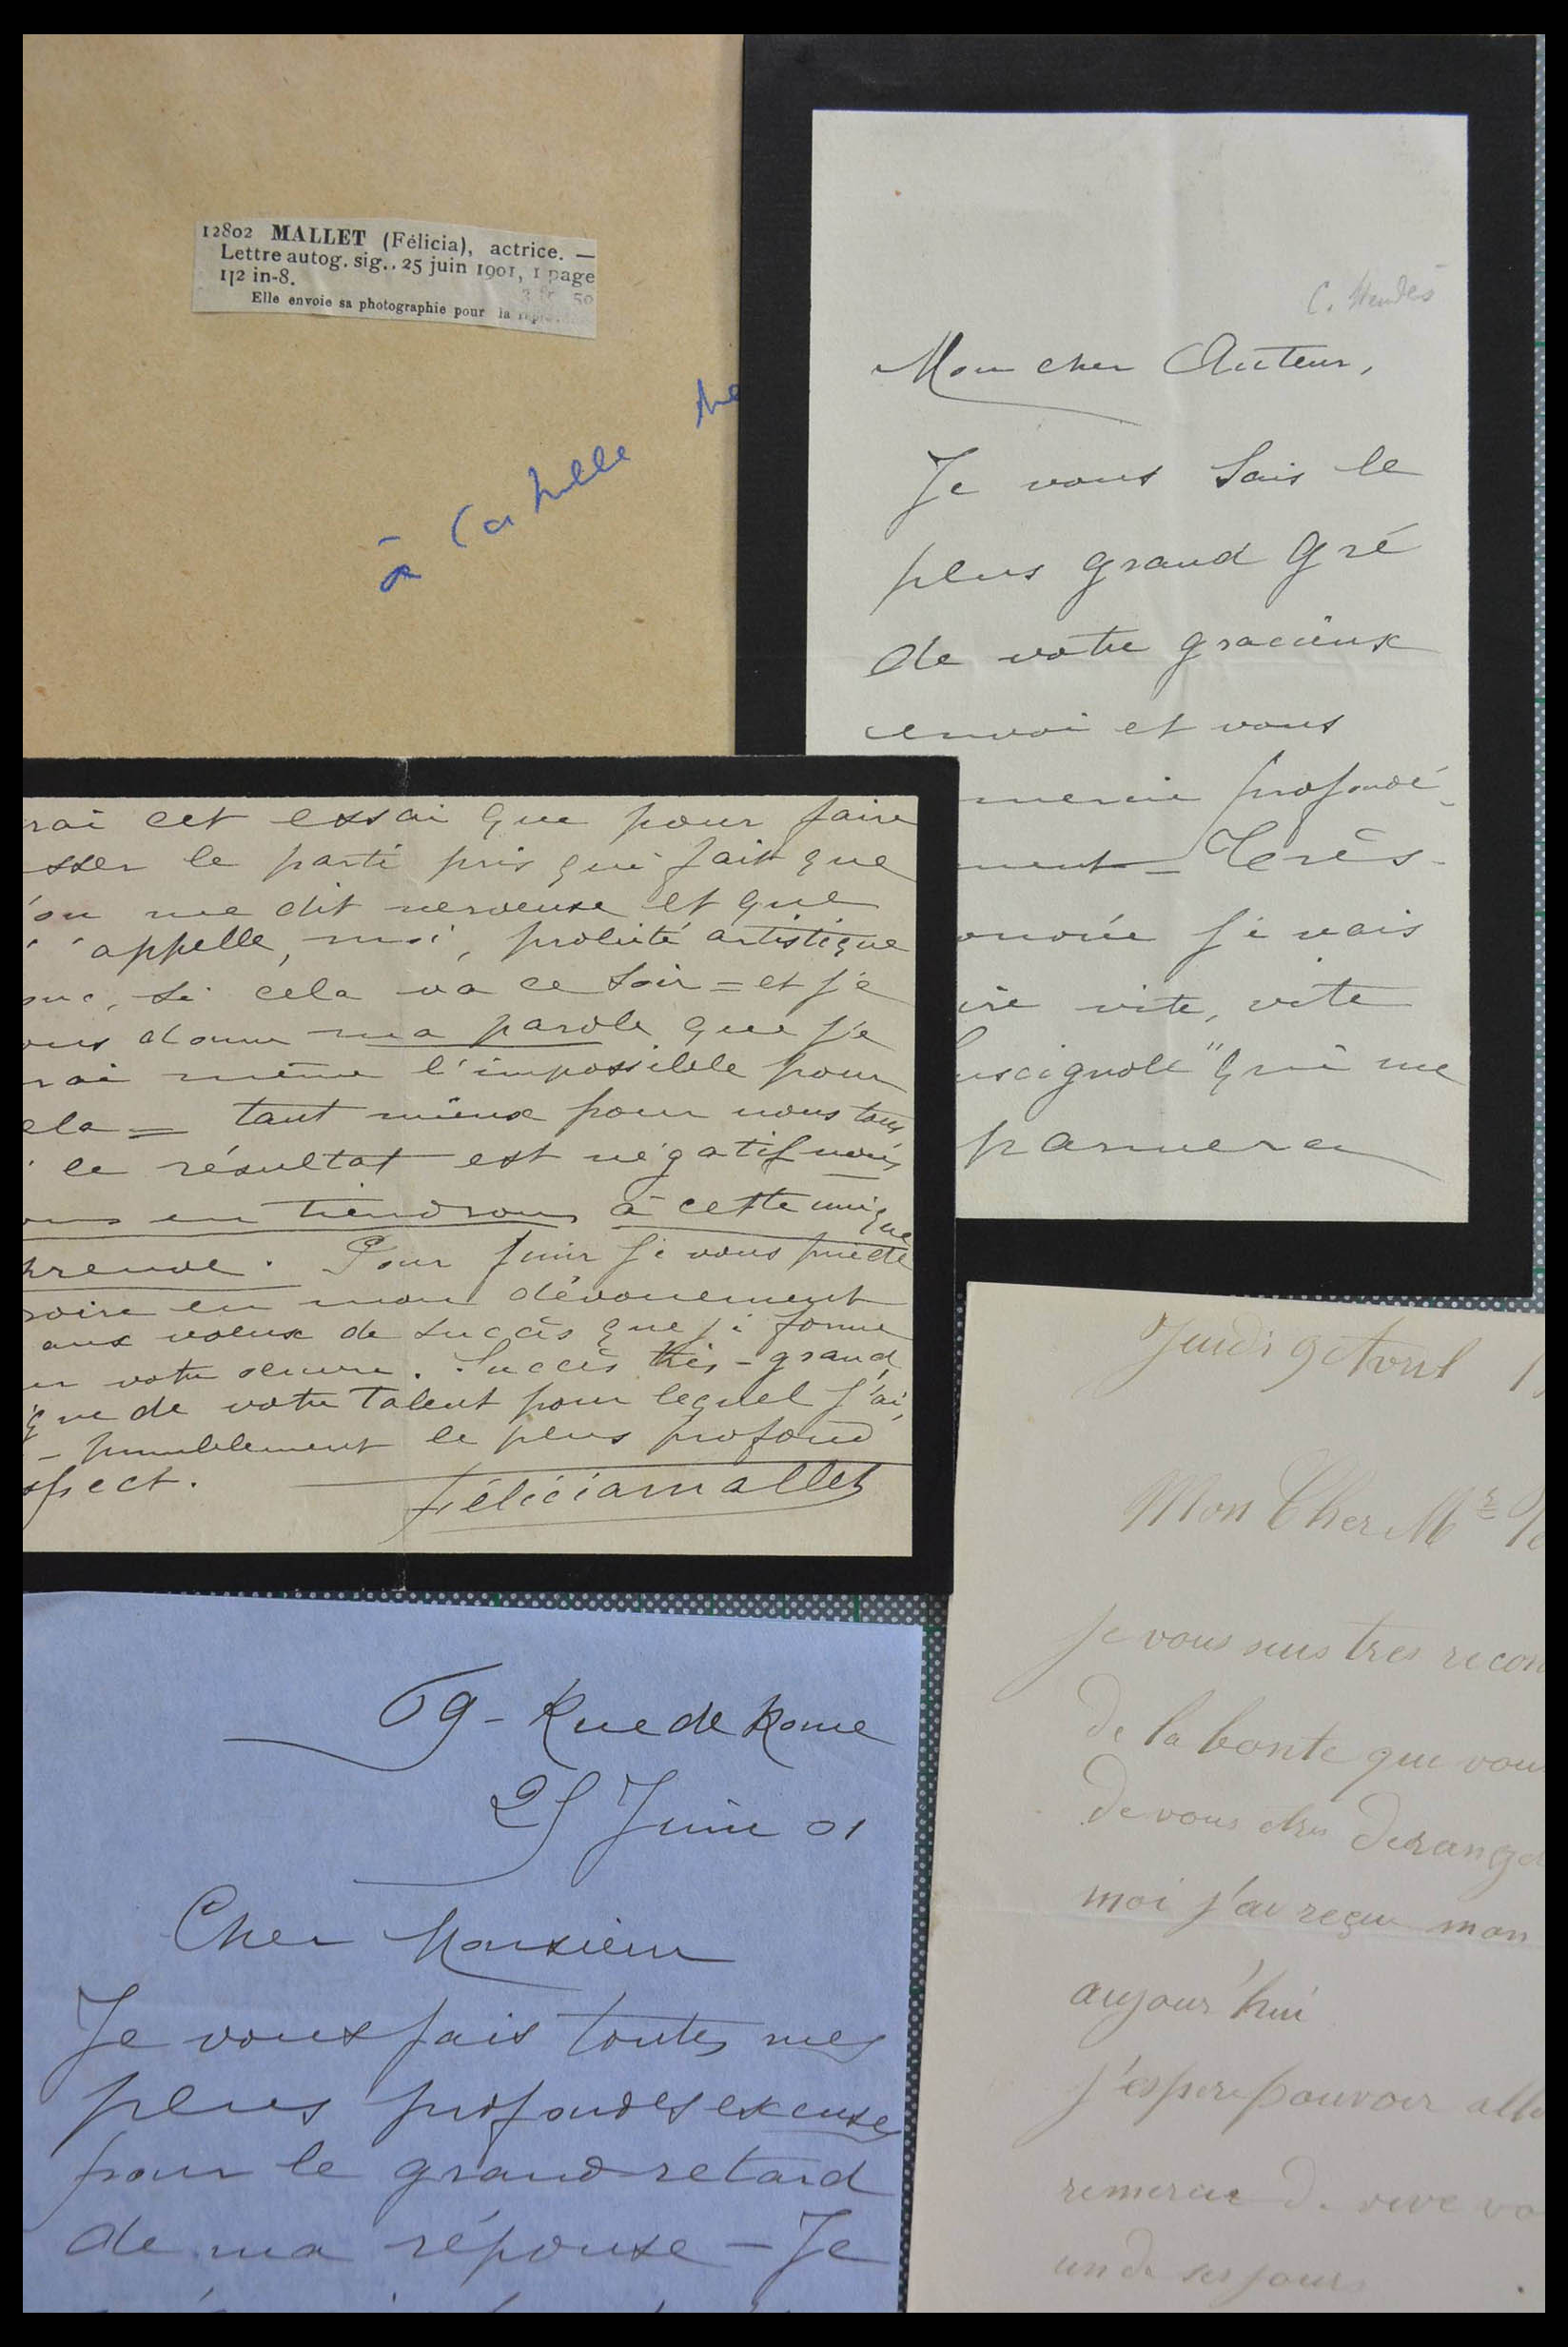 12802 MALLET (Félicia), actrice. —
Lettre autog. sig., 25 juin 1901, 1 page
1|2 in-8.
3 fr. 50
Elle envoie sa photographie pour la
à Catulle Me
C. Mendès
Mon cher Auteur,
Je vous sais le
plus grand gré
de votre gracieux
envoi et vous
mercie profondé-
ment = Très-
onorée je vais
ire vite, vite
uscignole" qui me
parvera
rai cet essai que pour faire
sser le parti pris qui fait que
'on me dit nerveuse et que
j'appelle, moi, probité artistique
onc, si cela va ce soir = et je
ous donne ma parole que je
rai même l'impossible pour
ela = tant mieux pour nous tous
le résultat est négatif nous
ous en tiendrons à cette unique
preuve. Pour finir je vous prie de
roire en mon dévouement
aux voeux de succès que je forme
ur votre oeuvre. Succès très-grand,
que de votre talent pour lequel j'ai,
- humblement le plus profond
spect.
Féliciamallet
69 - Rue de Rome
25 Juin 01
Cher Monsieur
Je vous fais toutes mes
plus profondes excuses
pour le grand retard
de ma réponse - Je
Jeudi 9 Avril 1
Mon Cher Mr
je vous suis tres recon
de la bonte que vous
de vous etre derange
moi j'ai reçu mon
aujour'hui
j'espere pouvoir alle
remercie de vive vo
un de ses jours